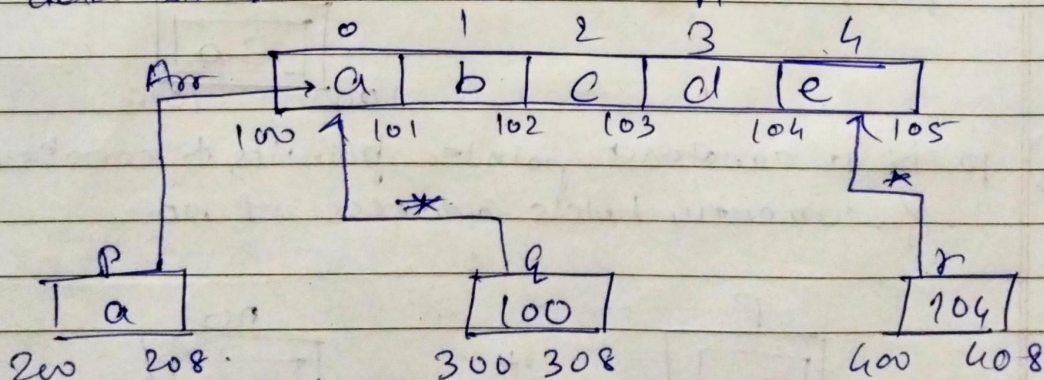 0 1 2 3 4
Arr a b c d e
100 101 102 103 104 105
* *
P q r
a 100 104
200 208. 300 308 400 408